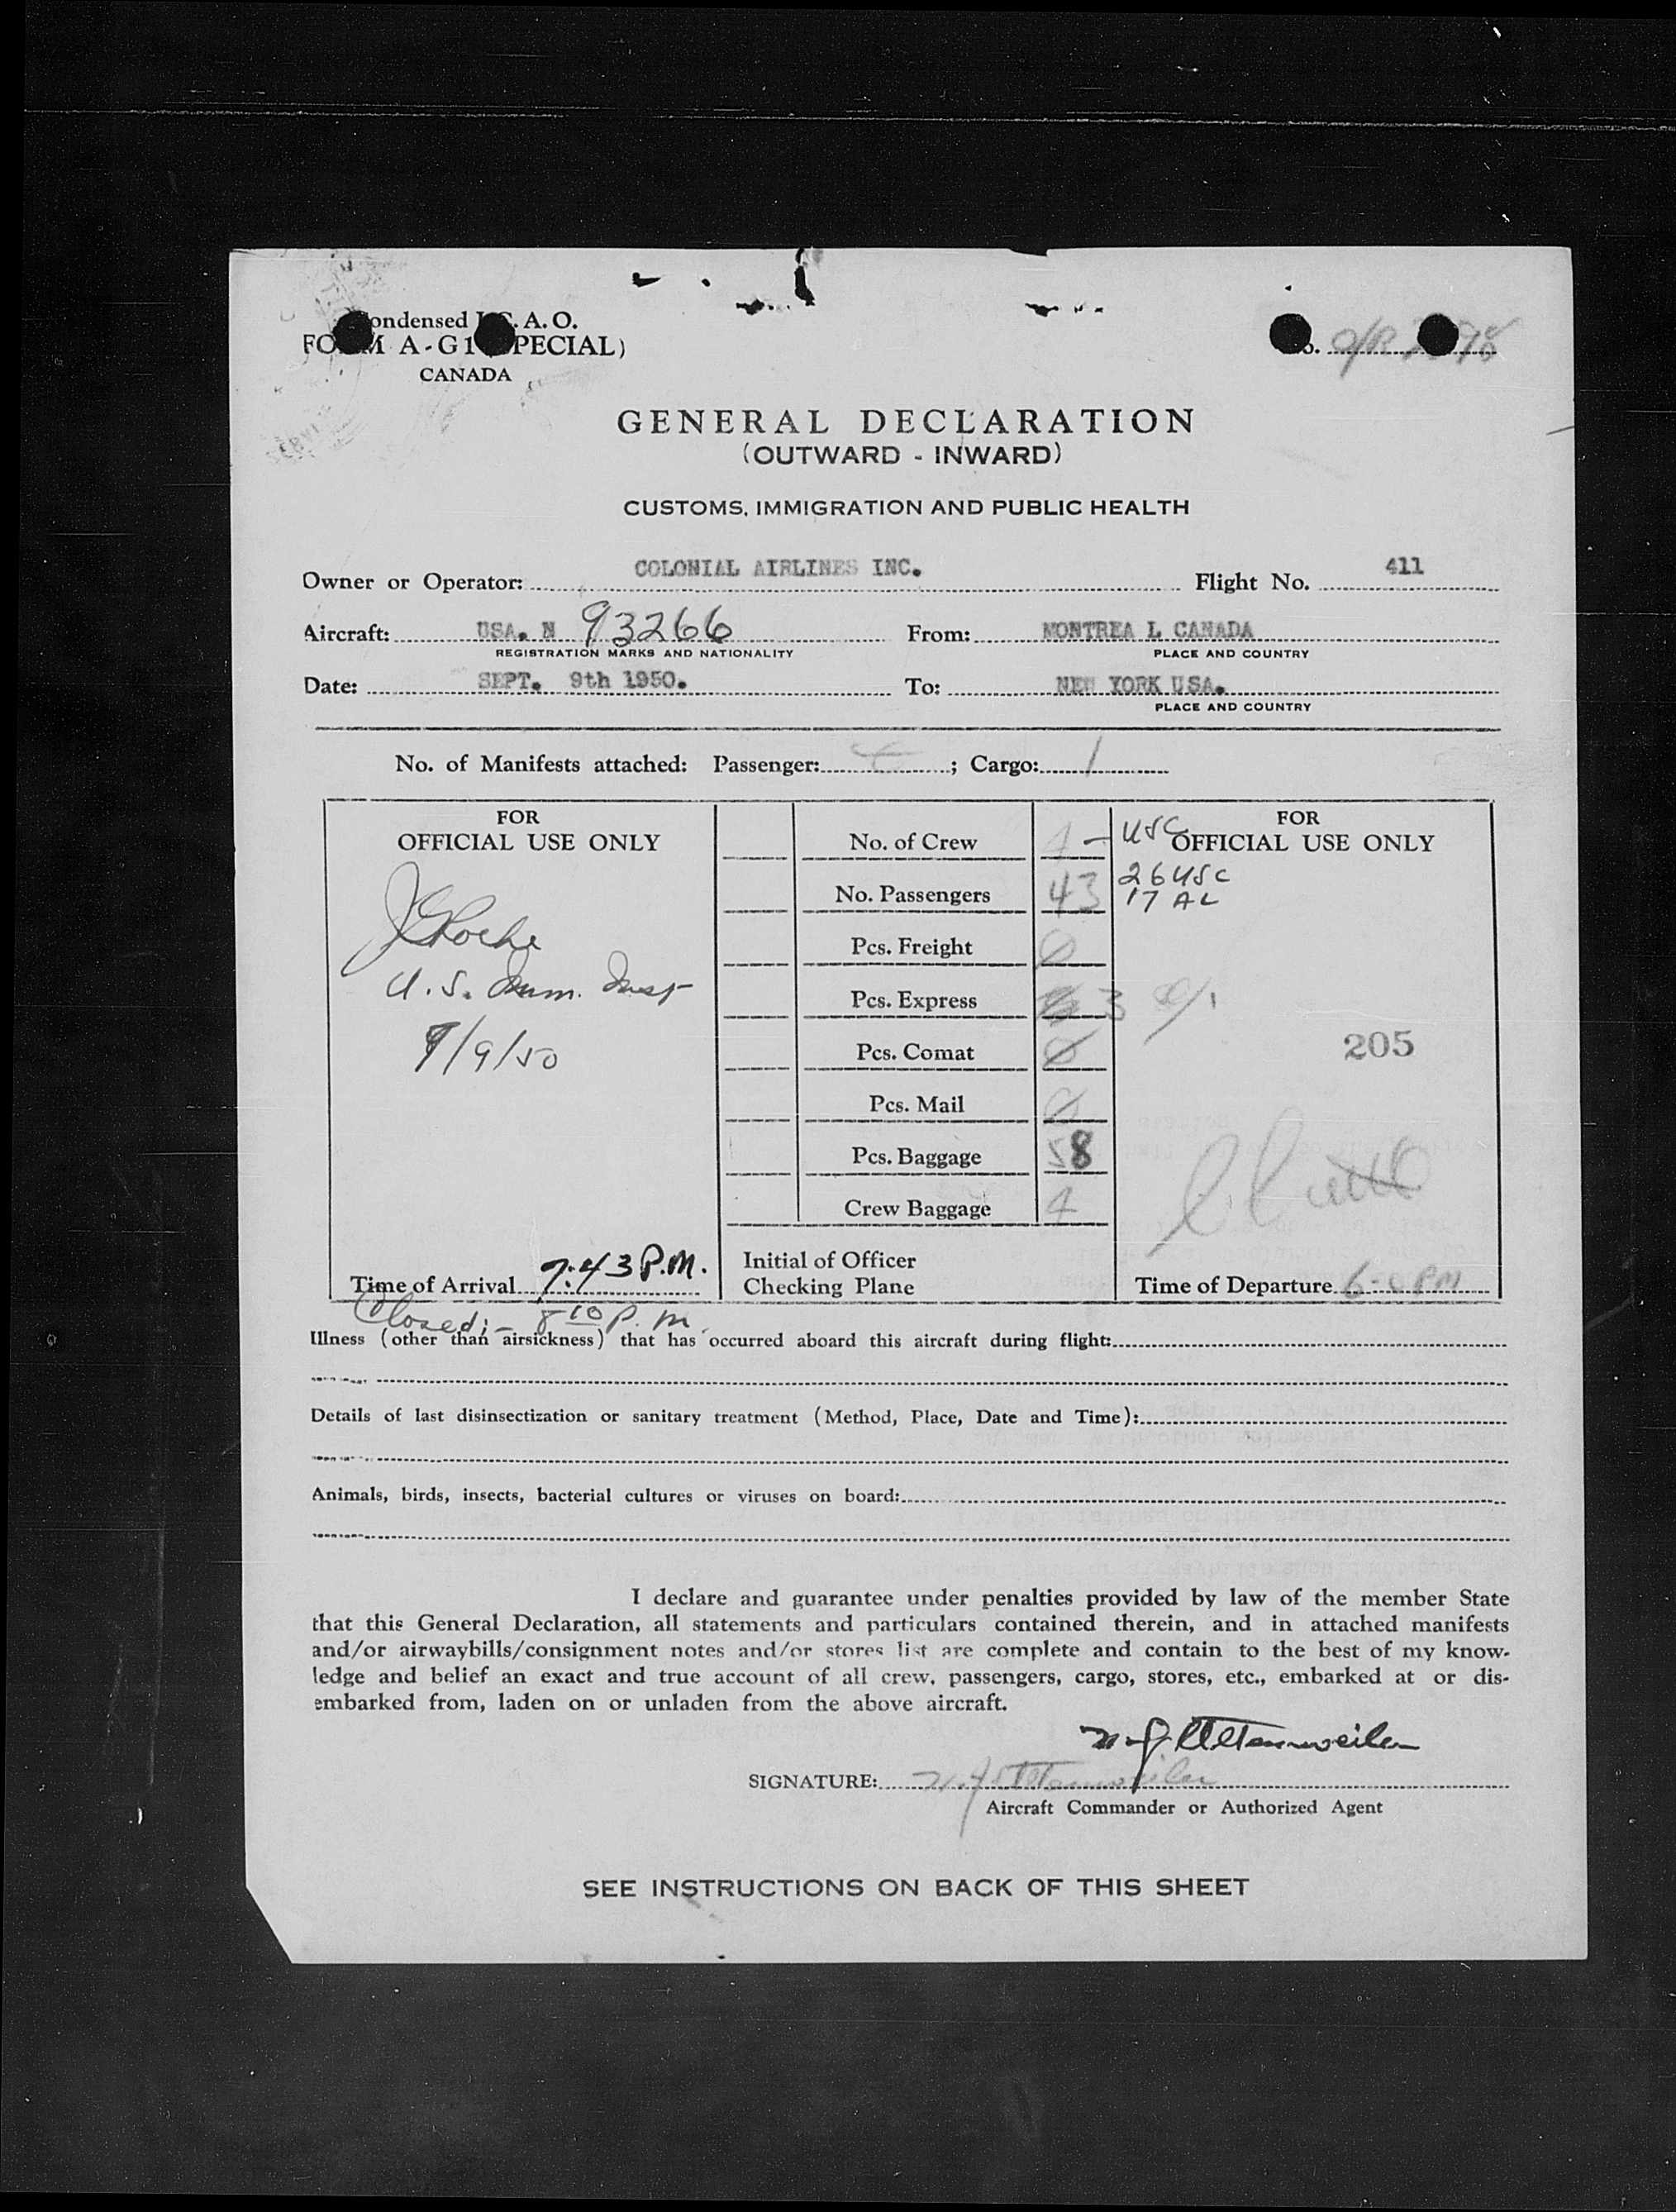 Condensed I.C.A.O.
FORM A-G1 (SPECIAL)
CANADA
No. O/R
GENERAL DECLARATION
(OUTWARD - INWARD)
CUSTOMS, IMMIGRATION AND PUBLIC HEALTH
Owner or Operator: COLONIAL AIRLINES INC. Flight No. 411
Aircraft: USA. N 93266 From: MONTREA L CANADA
REGISTRATION MARKS AND NATIONALITY PLACE AND COUNTRY
Date: SEPT. 9th 1950. To: NEW YORK USA.
PLACE AND COUNTRY
No. of Manifests attached: Passenger: ; Cargo: 1
FOR
OFFICIAL USE ONLY
U.S. Imm. Insp
9/9/50
Time of Arrival 7:43 P.M.
Closed:- 8 10 P.M.
No. of Crew 4 - USC
No. Passengers 43 26 USC
17 AL
Pcs. Freight 0
Pcs. Express 3
Pcs. Comat 0
Pcs. Mail 0
Pcs. Baggage 58
Crew Baggage 4
Initial of Officer
Checking Plane
FOR
OFFICIAL USE ONLY
205
Time of Departure PM
Illness (other than airsickness) that has occurred aboard this aircraft during flight:
Details of last disinsectization or sanitary treatment (Method, Place, Date and Time):
Animals, birds, insects, bacterial cultures or viruses on board:
I declare and guarantee under penalties provided by law of the member State
that this General Declaration, all statements and particulars contained therein, and in attached manifests
and/or airwaybills/consignment notes and/or stores list are complete and contain to the best of my know-
ledge and belief an exact and true account of all crew, passengers, cargo, stores, etc., embarked at or dis-
embarked from, laden on or unladen from the above aircraft.
SIGNATURE:
Aircraft Commander or Authorized Agent
SEE INSTRUCTIONS ON BACK OF THIS SHEET